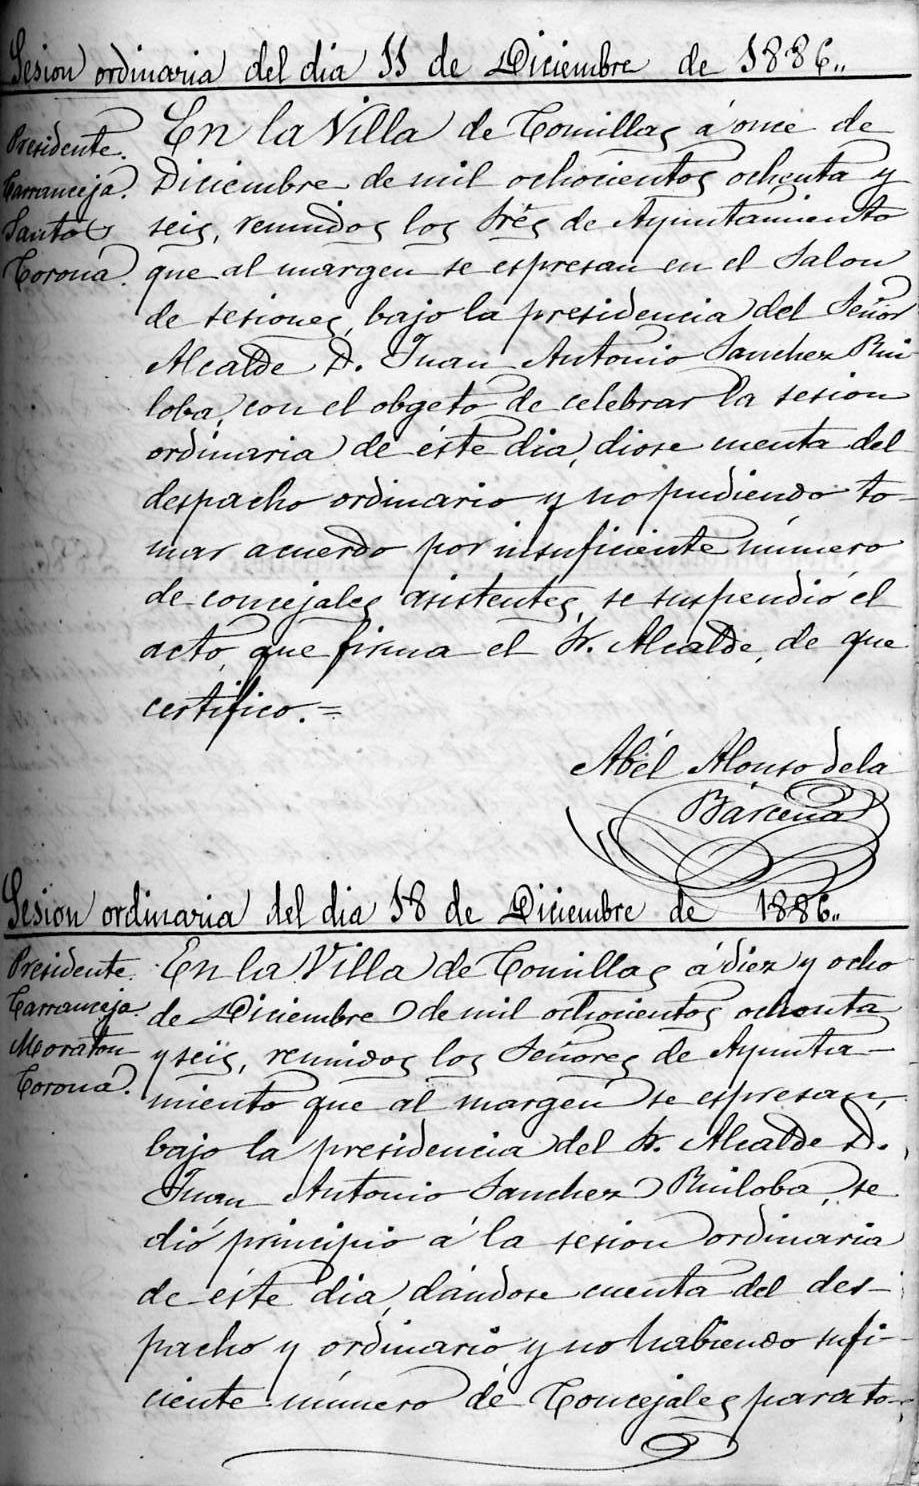 Sesion ordinaria del dia 11 de Diciembre de 1886..
Presidente.
Carranceja.
Santos
Corona.
En la Villa de Comillas á once de
Diciembre de mil ochocientos ochenta y
seis, reunidos los Srês de Ayuntamiento
que al margen se espresan en el Salon
de sesiones, bajo la presidencia del Señor
Alcalde D. Juan Antonio Sanchez Rui
loba, con el obgeto de celebrar la sesion
ordinaria de éste dia, diose cuenta del
despacho ordinario y no pudiendo to-
mar acuerdo por insuficiente número
de concejales asistentes, se suspendió el
acto, que firma el Sr. Alcalde, de que
certifico.=
Abél Alonso de la
Bárcena
Sesion ordinaria del dia 18 de Diciembre de 1886..
Presidente.
Carranceja.
Moraton
Corona.
En la Villa de Comillas á diez y ocho
de Diciembre de mil ochocientos ochenta
y seis, reunidos los Señores de Ayunta-
miento que al margen se espresan,
bajo la presidencia del Sr. Alcalde D.
Juan Antonio Sanchez Ruiloba, se
dió principio á la sesion ordinaria
de éste dia, dándose cuenta del des-
pacho y ordinario y no habiendo sufi-
ciente número de Concejales para to-